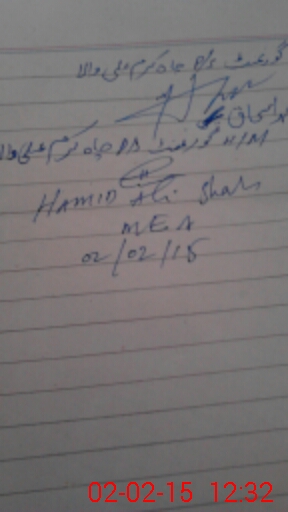 گورنمنٹ P/S چاہ کرم علی والا
اسحاق
H/M گورنمنٹ P/S چاہ کرم علی والا
HAMID Ali Shah
M.E.A
02/02/15
02-02-15 12:32